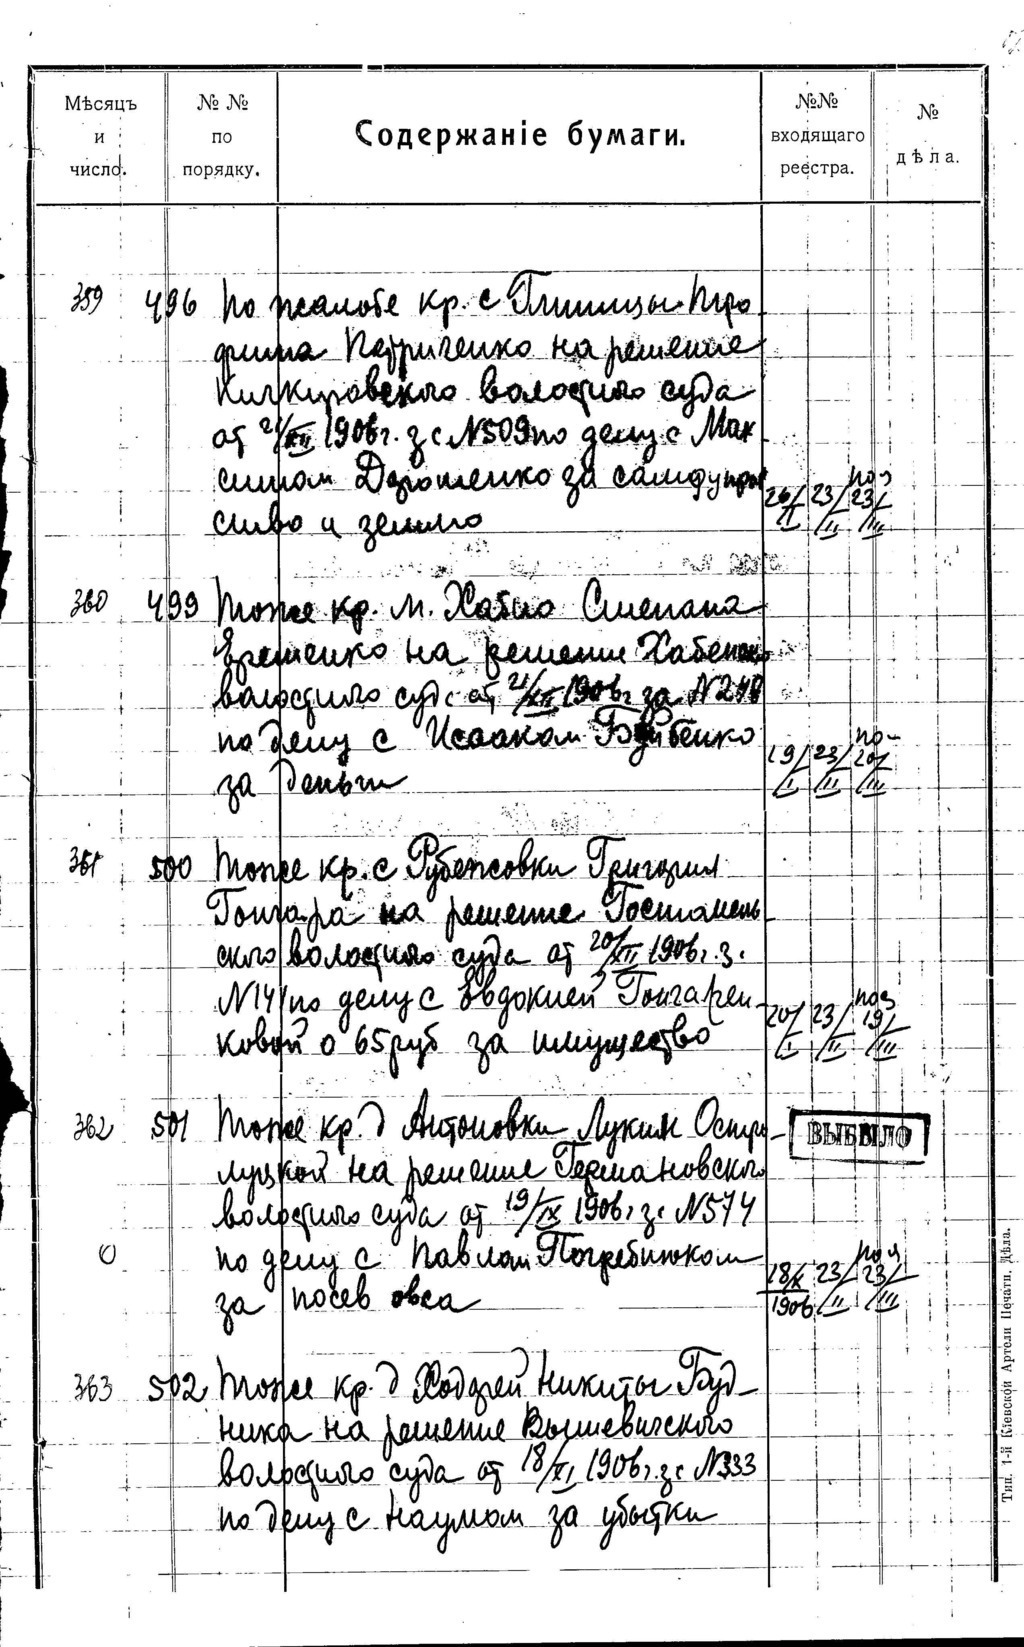 Мѣсяцъ и число.
№ № по порядку.
Содержаніе бумаги.
№№ входящаго реестра.
№ дѣла.
359 496 По жалобе кр. с Глиницы Тро-
фима Петриченко на решение
волостного суда
от 21/XII 1906 г. за №509 по делу с Мак-
симом Дорошенко за самоуправ
ство и землю
26/I 23/II 23/III
360 499 Тоже кр. м. Хабно Степана
Ерешенко на решение Хабенско
волостного суда от 21/XII 1906 г за №248
по делу с Исааком
за деньги
19/I 23/II 20/III
361 500 Тоже кр. с Рубежовки Григория
Гончара на решение Гостомель-
ского волостного суда от 20/XII 1906 г. за
№141 по делу с Евдокией Гончарен-
ковой о 65 руб за имущество
20/I 23/II 19/III
362 501 Тоже кр. д Антоновки Лукии Остро-
луцкой на решение Германовского
волостного суда от 19/IX 1906 г за №574
по делу с Павлом Погребнюком
за посев овса
ВЫБЫЛО
18/X 1906 23/II 23/III
363 502 Тоже кр. д Ходорей Никиты Буд-
ника на решение Вышевичского
волостного суда от 18/XI 1906 г. за №333
по делу с Наумом за убытки
Тип. 1-й Кіевской Артели Печатн. Дѣла.